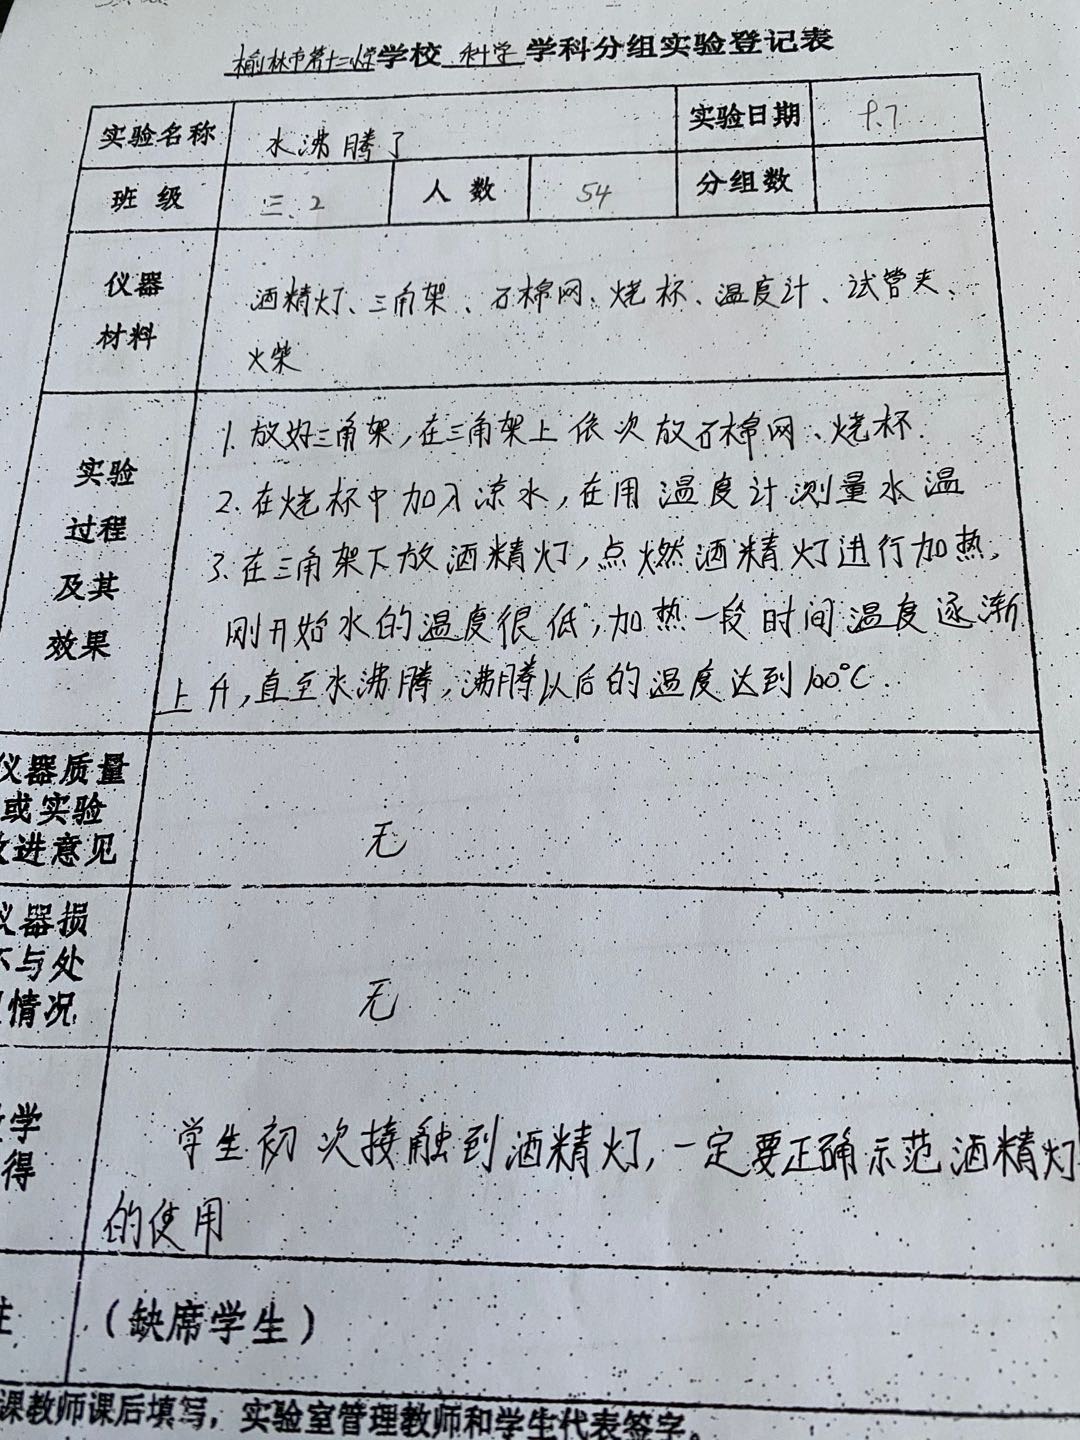 榆林市第十二小学学校 科学 学科分组实验登记表
实验名称 水沸腾了 实验日期 9.7
班级 三.2 人数 54 分组数
仪器
材料
酒精灯、三角架、石棉网、烧杯、温度计、试管夹、
火柴
实验
过程
及其
效果
1. 放好三角架,在三角架上依次放石棉网、烧杯.
2. 在烧杯中加入凉水,在用温度计测量水温
3. 在三角架下放酒精灯,点燃酒精灯进行加热,
刚开始水的温度很低,加热一段时间温度逐渐
上升,直至水沸腾,沸腾以后的温度达到100℃.
仪器质量
或实验
改进意见
无
仪器损
坏与处
情况
无
学
得
学生初次接触到酒精灯,一定要正确示范酒精灯
的使用
注
(缺席学生)
课教师课后填写,实验室管理教师和学生代表签字。